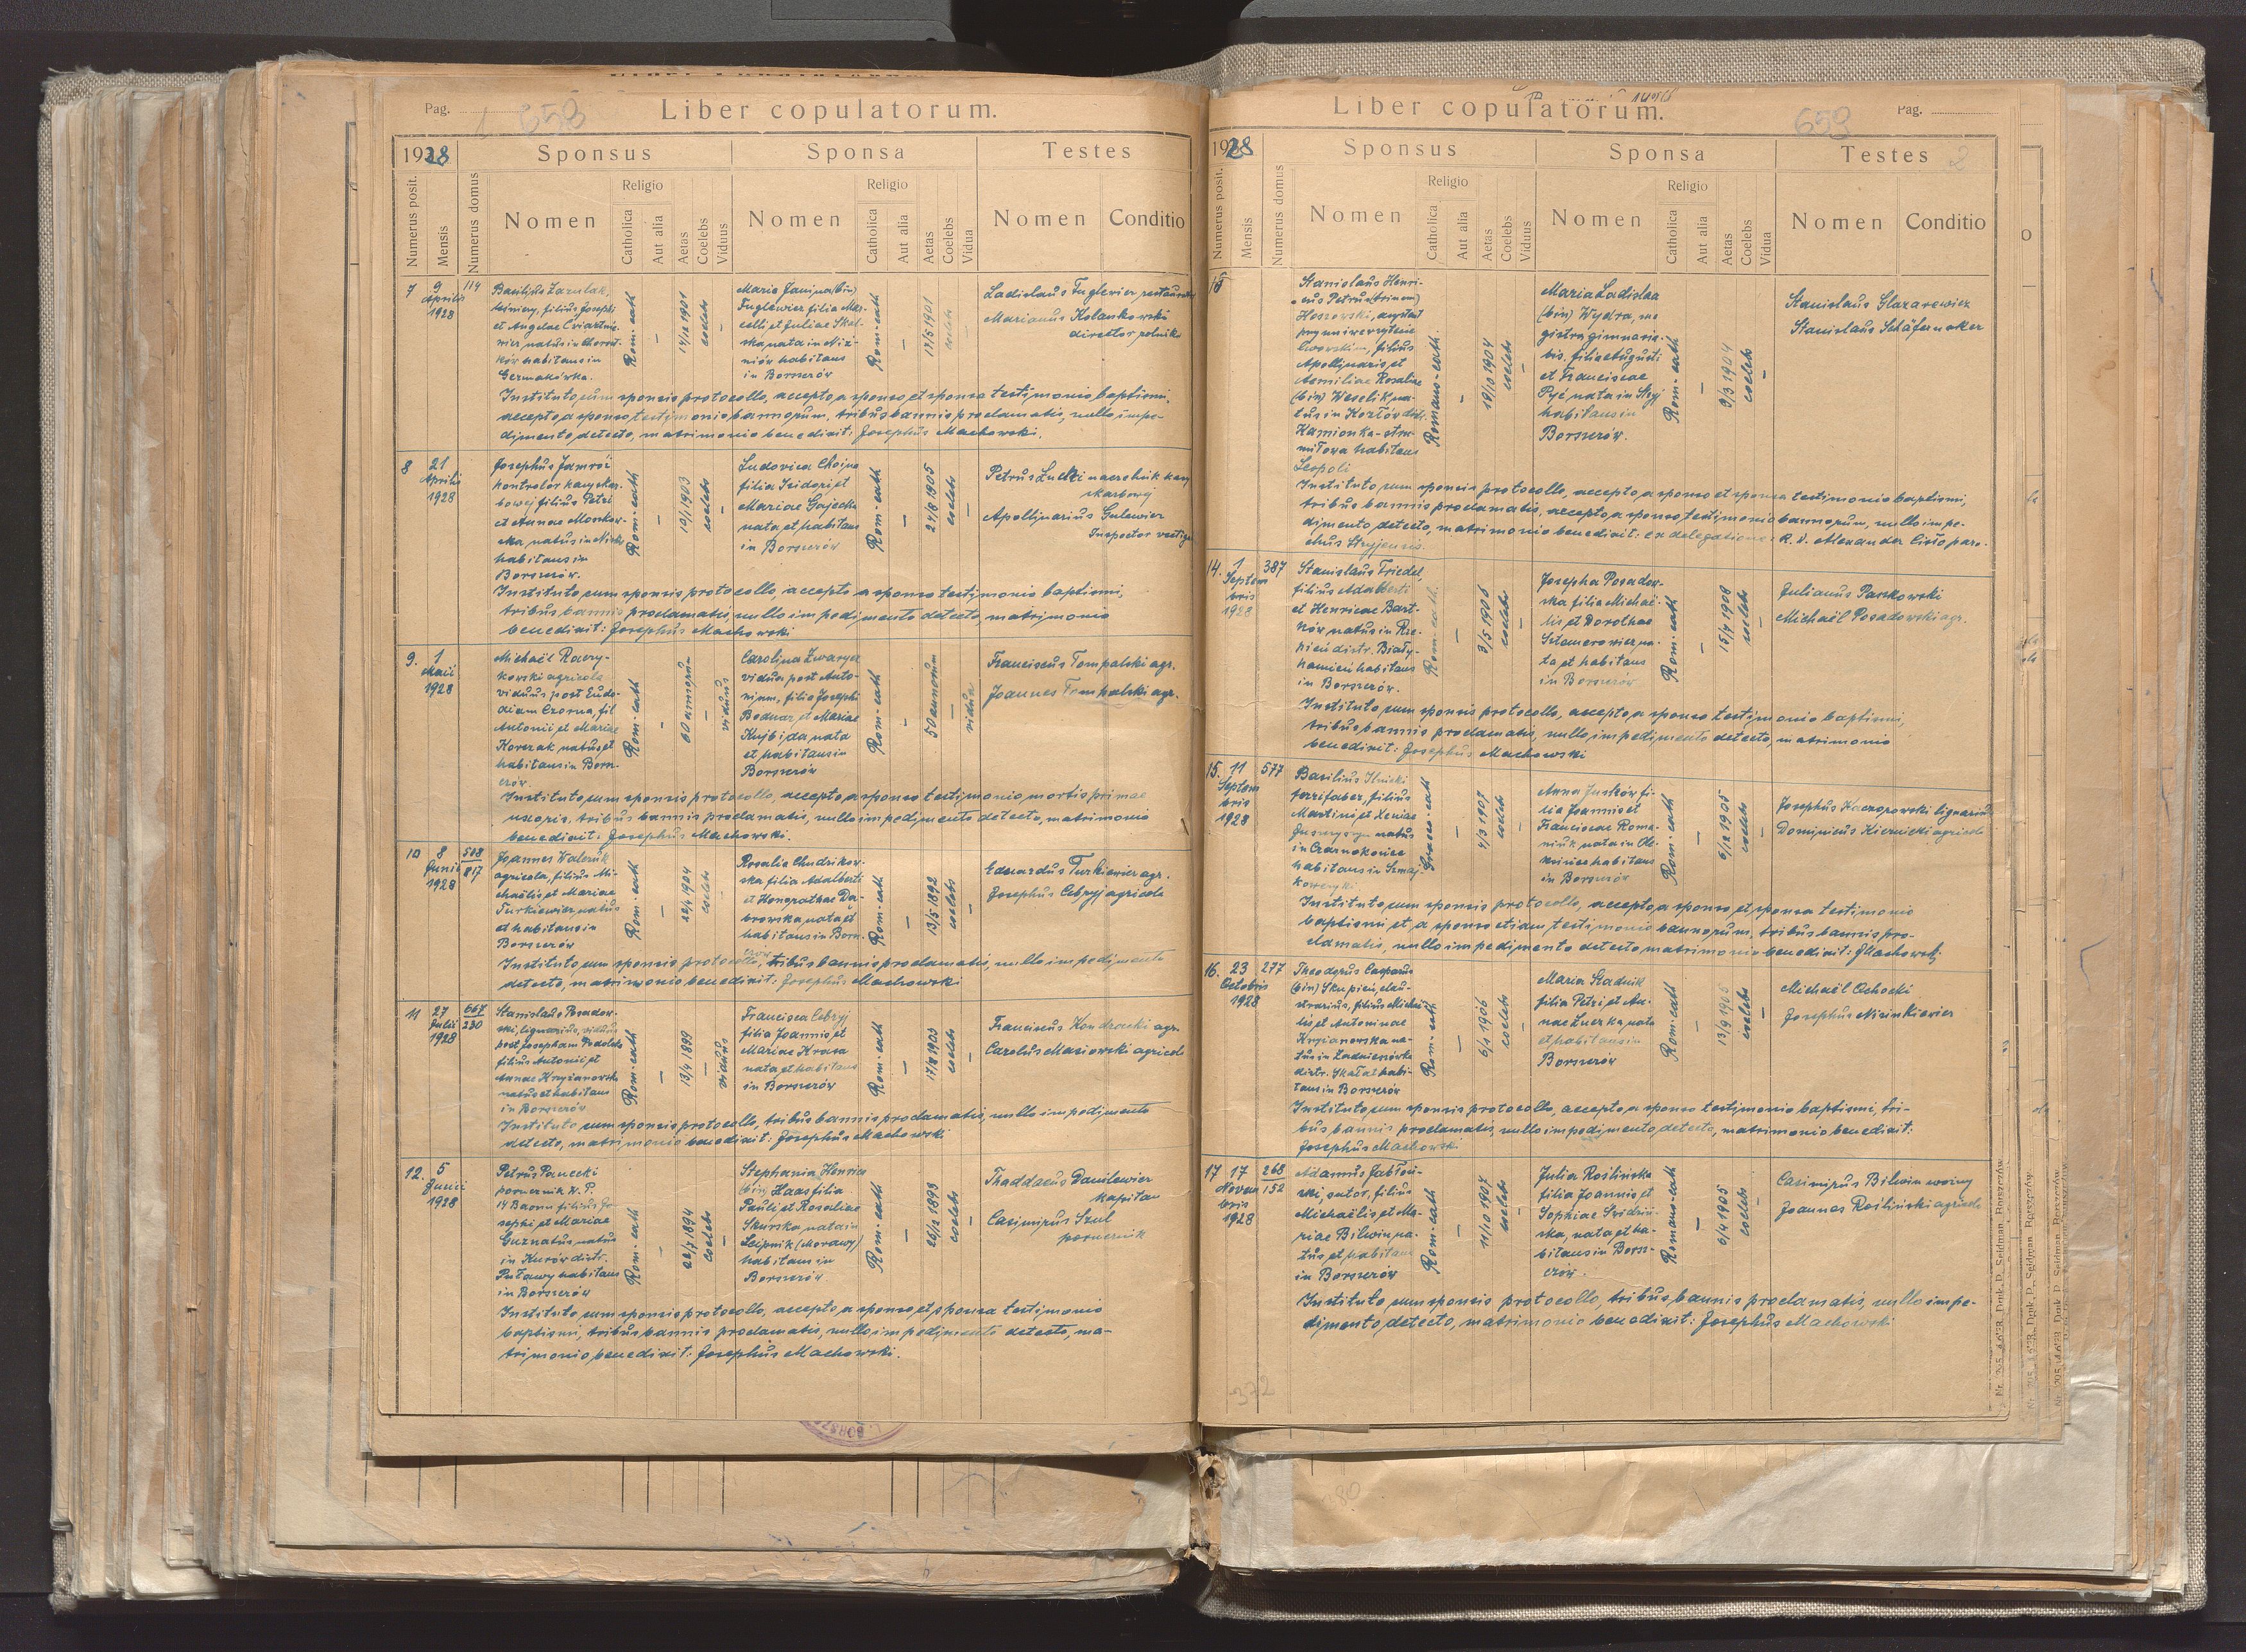 Pag. 658
Liber copulatorum.
1928
Sponsus
Sponsa
Testes
Numerus posit.
Mensis
Numerus domus
Nomen
Religio
Catholica
Aut alia
Aetas
Coelebs
Viduus
Nomen
Religio
Catholica
Aut alia
Aetas
Coelebs
Vidua
Nomen
Conditio
7
9
Aprilis
1928
114
et Angelae
habitans in
Germakówka.
Rom-cath
–
14/12 1901
coelebs
Maria Janina (bin)
Fuglewicz filia Mar-
celli et Juliae Skal-
ska nata in Niż-
niów habitans
in Borszczów
Rom-cath
–
17/5 1901
coelebs
–
Ladislaus Fuglewicz restaurator
Marianus Kolankowski
director
Instituto cum sponsis protocollo, accepto a sponso et sponsa testimonio baptismi,
accepto a sponso testimonio bannorum, tribus bannis proclamatis, nullo impe-
dimento detecto, matrimonio benedixit: Josephus Machowski.
8
21
Aprilis
1928
Josephus Jamróz
kontrolor kasy skar-
bowej filius Petri
et Annae
natus in Nisko
habitans in
Borszczów.
Rom-cath
–
19/1 1903
coelebs
–
Ludovica Chojna
filia Isidori et
Mariae Gajecka
nata et habitans
in Borszczów
Rom-cath
–
24/8 1905
coelebs
–
Petrus naczelnik kasy
skarbowej
Apollinarius Gulewicz
Inspector
Instituto cum sponsis protocollo, accepto a sponso testimonio baptismi,
tribus bannis proclamatis, nullo impedimento detecto, matrimonio
benedixit: Josephus Machowski
9.
1
Maii
1928
Michaël Raczy-
kowski agricola
viduus post Eudo-
ciam Czorna, fil
Antonii et Mariae
Korczak natus et
habitans in Borsz-
czów
Rom-cath
–
60 annorum
–
viduus
Carolina Zwarycz
vidua post Anto-
nium, filia Josephi
Bodnar et Mariae
Kujbida nata
et habitans in
Borszczów
Rom-cath
–
50 annorum
–
vidua
Franciscus Tompalski agr.
Joannes Tompalski agr.
Instituto cum sponsis protocollo, accepto a sponso testimonio mortis primae
uxoris, tribus bannis proclamatis, nullo impedimento detecto, matrimonio
benedixit: Josephus Machowski.
10
8
Junii
1928
508
817
Joannes Walczuk
agricola, filius Mi-
chaëlis et Mariae
Turkiewicz natus
et habitans in
Borszczów
Rom-cath
–
22/4 1904
coelebs
Rosalia Chudzikow-
ska filia Adalberti
et Honorathae Dą-
browska nata et
habitans in Borsz-
czów
Rom-cath
–
13/5 1892
coelebs
–
Eduardus Turkiewicz agr.
Josephus Cebryj agricola
Instituto cum sponsis protocollo, tribus bannis proclamatis, nullo impedimento
detecto, matrimonio benedixit: Josephus Machowski
11
27
Julii
1928
667
230
Stanislaus Posadow-
ski, lignarius, viduus
post Josepham
filius Antonii et
Annae Krzyżanowska
natus et habitans
in Borszczów
Rom-cath
–
13/4 1899
–
viduus
Francisca Cebryj
filia Joannis et
Mariae Krasa
nata et habitans
in Borszczów
Rom-cath
–
17/12 1903
coelebs
–
Franciscus Kondracki agr.
Carolus Masiowski agricola
Instituto cum sponsis protocollo, tribus bannis proclamatis, nullo impedimento
detecto, matrimonio benedixit: Josephus Machowski
12.
5
Junii
1928
Petrus Panecki
porucznik W. P.
14 Baonu filius Jo-
sephi et Mariae
natus
in Kurów distr.
Puławy habitans
in Borszczów
Rom-cath
–
22/7 1894
coelebs
–
Stephania Henrica
(bin) Haas filia
Pauli et Rosaliae
Skurska nata in
Leipnik (Morawy)
habitans in
Borszczów
Rom-cath
–
26/12 1893
coelebs
–
Thaddaeus Danilewicz
kapitan
Casimirus Szul
porucznik
Instituto cum sponsis protocollo, accepto a sponso et sponsa testimonio
baptismi, tribus bannis proclamatis, nullo impedimento detecto, ma-
trimonio benedixit: Josephus Machowski.
Liber copulatorum.
659
Pag.
1928
Sponsus
Sponsa
Testes
2
Numerus posit.
Mensis
Numerus domus
Nomen
Religio
Catholica
Aut alia
Aetas
Coelebs
Viduus
Nomen
Religio
Catholica
Aut alia
Aetas
Coelebs
Vidua
Nomen
Conditio
Stanislaus Henri-
cus Petrus (trinom)
Hoszowski, asystent
przy uniwersytecie
lwowskim, filius
Apollinaris et
Aemiliae Rosaliae
(bin) Weselik na-
tus in Kozłów distr.
Kamionka-stru-
miłowa habitans
Leopoli
Romano-cath
–
19/10 1904
coelebs
–
Maria Ladislaa
(bin) Wydra, ma
gistra gimnasia-
lis. filia Augusti
et Franciscae
Pyć nata in Stryj
habitans in
Borszczów.
Rom-cath
–
9/3 1904
coelebs
–
Stanislaus Glazarewicz
Stanislaus Schäfernoker
Instituto cum sponsis protocollo, accepto a sponso et sponsa testimonio baptismi,
tribus bannis proclamatis, accepto a sponso testimonio bannorum, nullo impe-
dimento detecto, matrimonio benedixit: ex delegatione: R. D. Alexander Cisło paro-
chus Stryjensis.
14.
1
Septem
bris
1928
387
Stanislaus Friedel,
filius Adalberti
et Henricae Bart-
ków natus in Rze-
pień distr. Biały-
kamień habitans
in Borszczów.
Rom-cath
–
3/5 1906
coelebs
–
Josepha Posadow-
ska filia Michaë-
lis et Dorothae
na-
ta et habitans
in Borszczów
Rom-cath
–
15/4 1908
coelebs
–
Julianus Paszkowski
Michaël Posadowski agr.
Instituto cum sponsis protocollo, accepto a sponso testimonio baptismi,
tribus bannis proclamatis, nullo impedimento detecto, matrimonio
benedixit: Josephus Machowski
15.
11
Septem
bris
1928
577
Basilius Ilnicki
ferrifaber, filius
Martini et Xeniae
natus
in Czarnokońce
habitans in
Graeco-cath
–
4/3 1907
coelebs
–
Anna Juśków fi-
lia Joannis et
Franciscae Roma-
niuk nata in Ole-
ksińce habitans
in Borszczów
Rom-cath
–
6/12 1905
coelebs
–
Josephus Kaczorowski lignarius
Dominicus Kiernicki agricola
Instituto cum sponsis protocollo, accepto a sponso et sponsa testimonio
baptismi et a sponso etiam testimonio bannorum, tribus bannis pro-
clamatis, nullo impedimento detecto matrimonio benedixit: JMachowski.
16.
23
Octobris
1928
277
Theodorus Casparus
(bin) Skupień, clau-
strarius, filius Michaë-
lis et Antoninae
Krzyżanowska na-
tus in
distr. Skałat habi-
tans in Borszczów
Rom-cath
–
6/1 1906
coelebs
–
Maria Stadnik
filia Petri et An-
nae Łucka nata
et habitans in
Borszczów
Rom-cath
–
13/9 1905
coelebs
–
Michaël Ochocki
Josephus Nizinkiewicz
Instituto cum sponsis protocollo, accepto a sponso testimonio baptismi, tri-
bus bannis proclamatis, nullo impedimento detecto, matrimonio benedixit:
Josephus Machowski
17
17
Novem
bris
1928
268
152
Adamus Jabłoń-
ski, sutor, filius
Michaëlis et Ma-
riae Bilwin na-
tus et habitans
in Borszczów
Rom-cath
–
11/10 1907
coelebs
–
Julia Roślińska
filia Joannis et
Sophiae Svidziń-
ska, nata et ha-
bitans in Borsz-
czów.
Romano-cath
–
6/4 1905
coelebs
–
Casimirus Bilwin woźny
Joannes Rośliński agricola
Instituto cum sponsis protocollo, tribus bannis proclamatis, nullo impe-
dimento detecto, matrimonio benedixit: Josephus Machowski
372
Druk. D. Seidman. Borszczów.